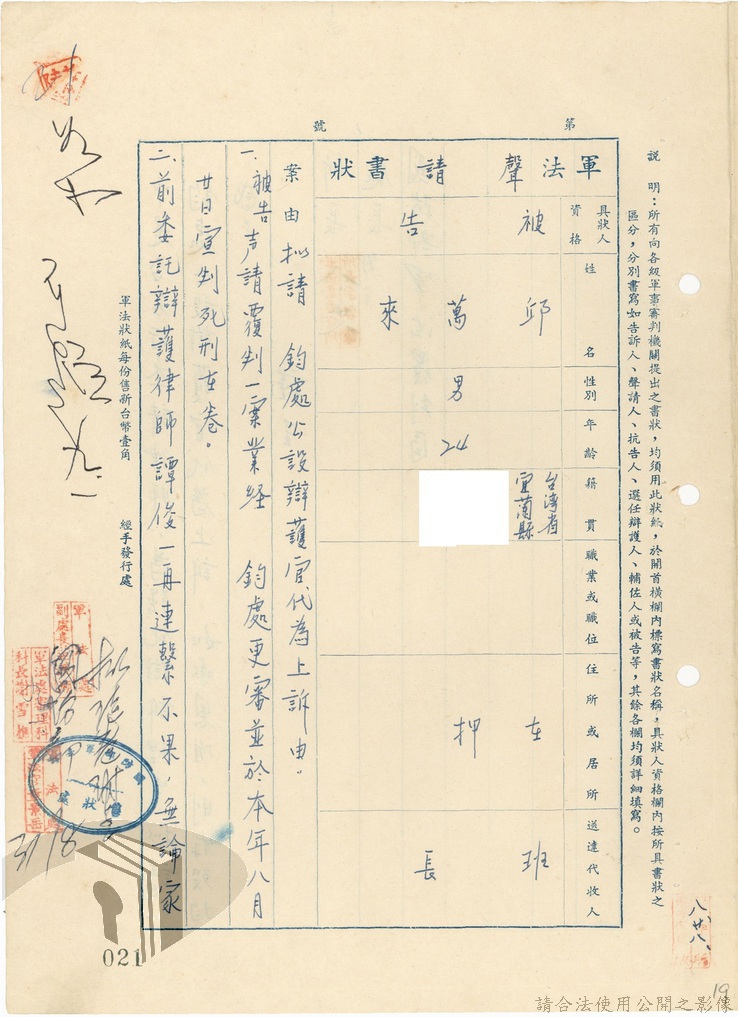 說明：所有向各級軍事審判機關提出之書狀，均須用此狀紙，於開首橫欄內標寫書狀名稱，具狀人資格欄內按所具書狀之
區分，分別書寫如告訴人、聲請人、抗告人、選任辯護人、輔佐人或被告等，其餘各欄均須詳細填寫。
第 號
軍法聲請書狀
具狀人資格 被告
姓名 邱萬來
性別 男
年齡 24
籍貫 台灣省宜蘭縣
職業或職位
住所或居所 在押
送達代收人 班長
案由 拟請 鈞處公設辯護官代為上訴由。
一、被告声請覆判一案業经 鈞處更審並於本年八月
廿日宣判死刑在卷。
二、前委託辯護律師譚俊一再連繫不果，無論家
軍法狀紙每份售新台幣壹角
經手發行處
31/8
八、廿八、
021
19
請合法使用公開之影像